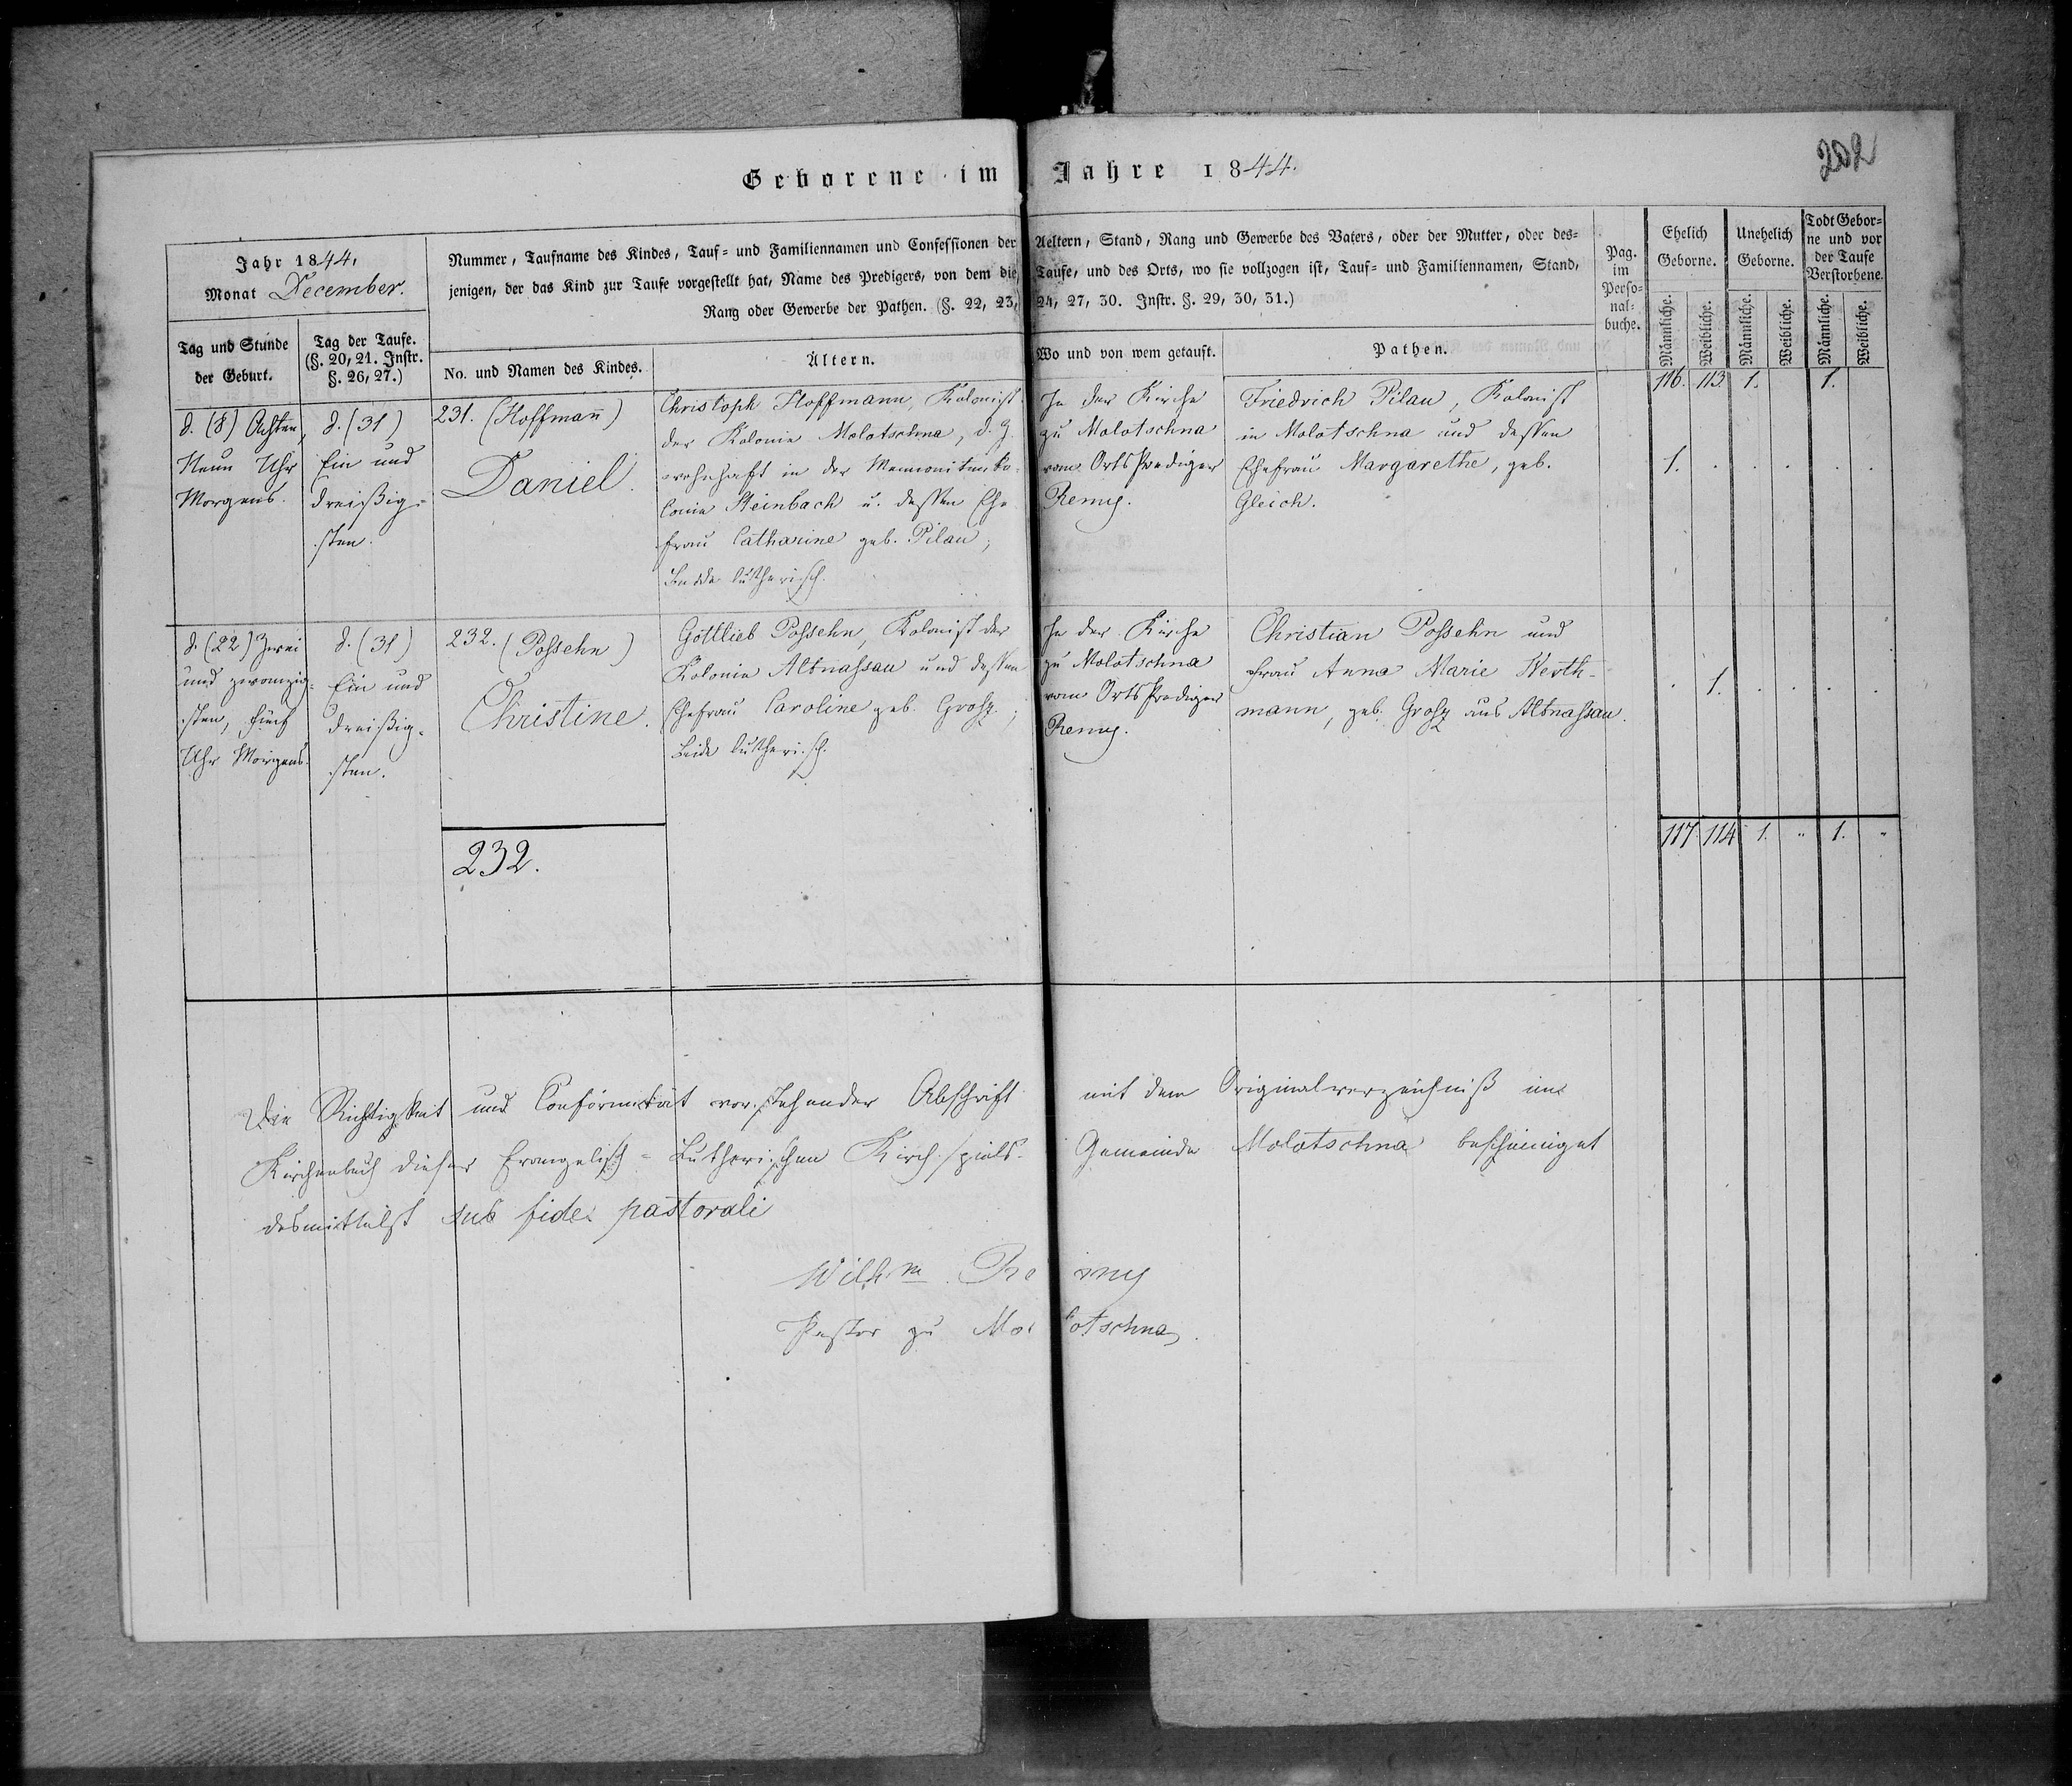 Geborene im Jahre 1844.
202
Jahr 1844,
Monat December.
Nummer, Taufname des Kindes, Tauf- und Familiennamen und Confessionen der Aeltern, Stand, Rang und Gewerbe des Vaters, oder der Mutter, oder des-
jenigen, der das Kind zur Taufe vorgestellt hat, Name des Predigers, von dem die Taufe, und des Orts, wo sie vollzogen ist, Tauf- und Familiennamen, Stand,
Rang oder Gewerbe der Pathen. (§. 22, 23, 24, 27, 30. Instr. §. 29, 30, 31.)
Pag.
im
Perso-
nal-
buche.
Ehelich
Geborne.
Unehelich
Geborne.
Todt Gebor-
ne und vor
der Taufe
Verstorbene.
Männliche.
Weibliche.
Männliche.
Weibliche.
Männliche.
Weibliche.
Tag und Stunde
der Geburt.
Tag der Taufe.
(§. 20, 21. Instr.
§. 26, 27.)
No. und Namen des Kindes.
Ältern.
Wo und von wem getauft.
Pathen.
116. 113. 1. 1.
d. (8) Achten,
Neun Uhr
Morgens.
d. (31)
Ein und
dreißig-
sten.
231. (Hoffmann̄)
Daniel.
Christoph Hoffmann, Kolonist
der Kolonie Molotschna, d. Z.
wohnhaft in der Mennoniten Ko-
lonie Steinbach u. dessen Ehe-
frau Catharine geb. Pilau;
Beide lutherisch.
In der Kirche
zu Molotschna
vom Orts Prediger
Remy.
Friedrich Pilau, Kolonist
in Molotschna und dessen
Ehefrau Margarethe, geb.
Gleich.
1. . . . . .
d. (22) Zwei
und zwanzig-
sten, Fünf
Uhr Morgens.
d. (31)
Ein und
dreißig-
sten.
232. (Possehn)
Christine.
Gottlieb Possehn, Kolonist der
Kolonie Altnassau und dessen
Ehefrau Caroline geb. Grosz;
Beide lutherisch.
In der Kirche
zu Molotschna
vom Orts Prediger
Remy.
Christian Possehn und
Frau Anna Marie Werth-
mann, geb. Grosz aus Altnassau.
. 1. . . . .
232.
117 114 1. " 1. "
Die Richtigkeit und Conformität vorstehender Abschrift mit dem Originalverzeichniß im
Kirchenbuch dieser Evangelisch-Lutherischen Kirchspiels-Gemeinde Molotschna bescheiniget
desmittelst sub fide pastorali
Wilhm. Remy
Pastor zu Molotschna.